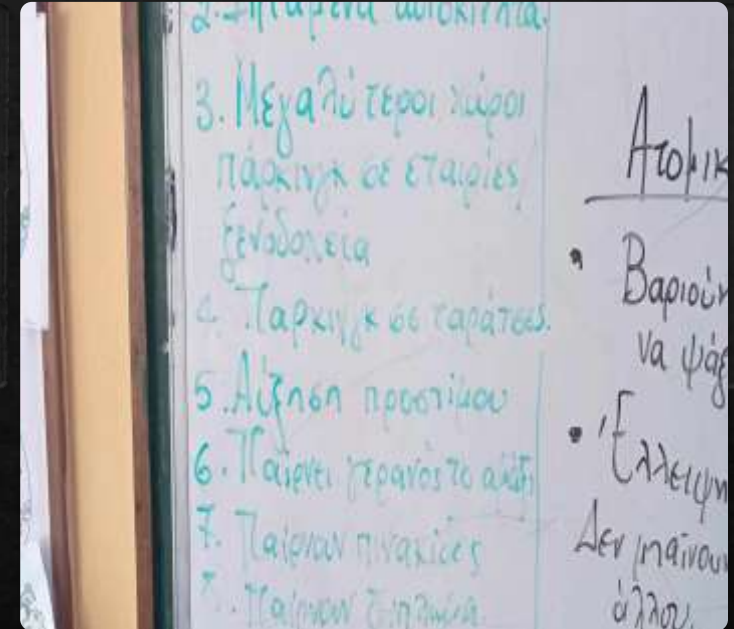 2. Ιπτάμενα αυτοκίνητα.
3. Μεγαλύτεροι χώροι
πάρκινγκ σε εταιρίες
ξενοδοχεία
4. Πάρκινγκ σε ταράτσες.
5. Αύξηση προστίμου
6. Παίρνει γερανός το
7. Παίρνουν πινακίδες
8. Παίρνουν
Ατομικ
• Βαριούν
να ψάξ
• Έλλειψη
Δεν μπαίνουν
άλλου.